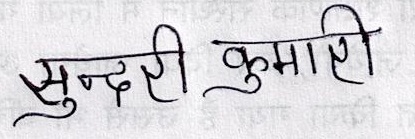 सुन्दरी कुमारी